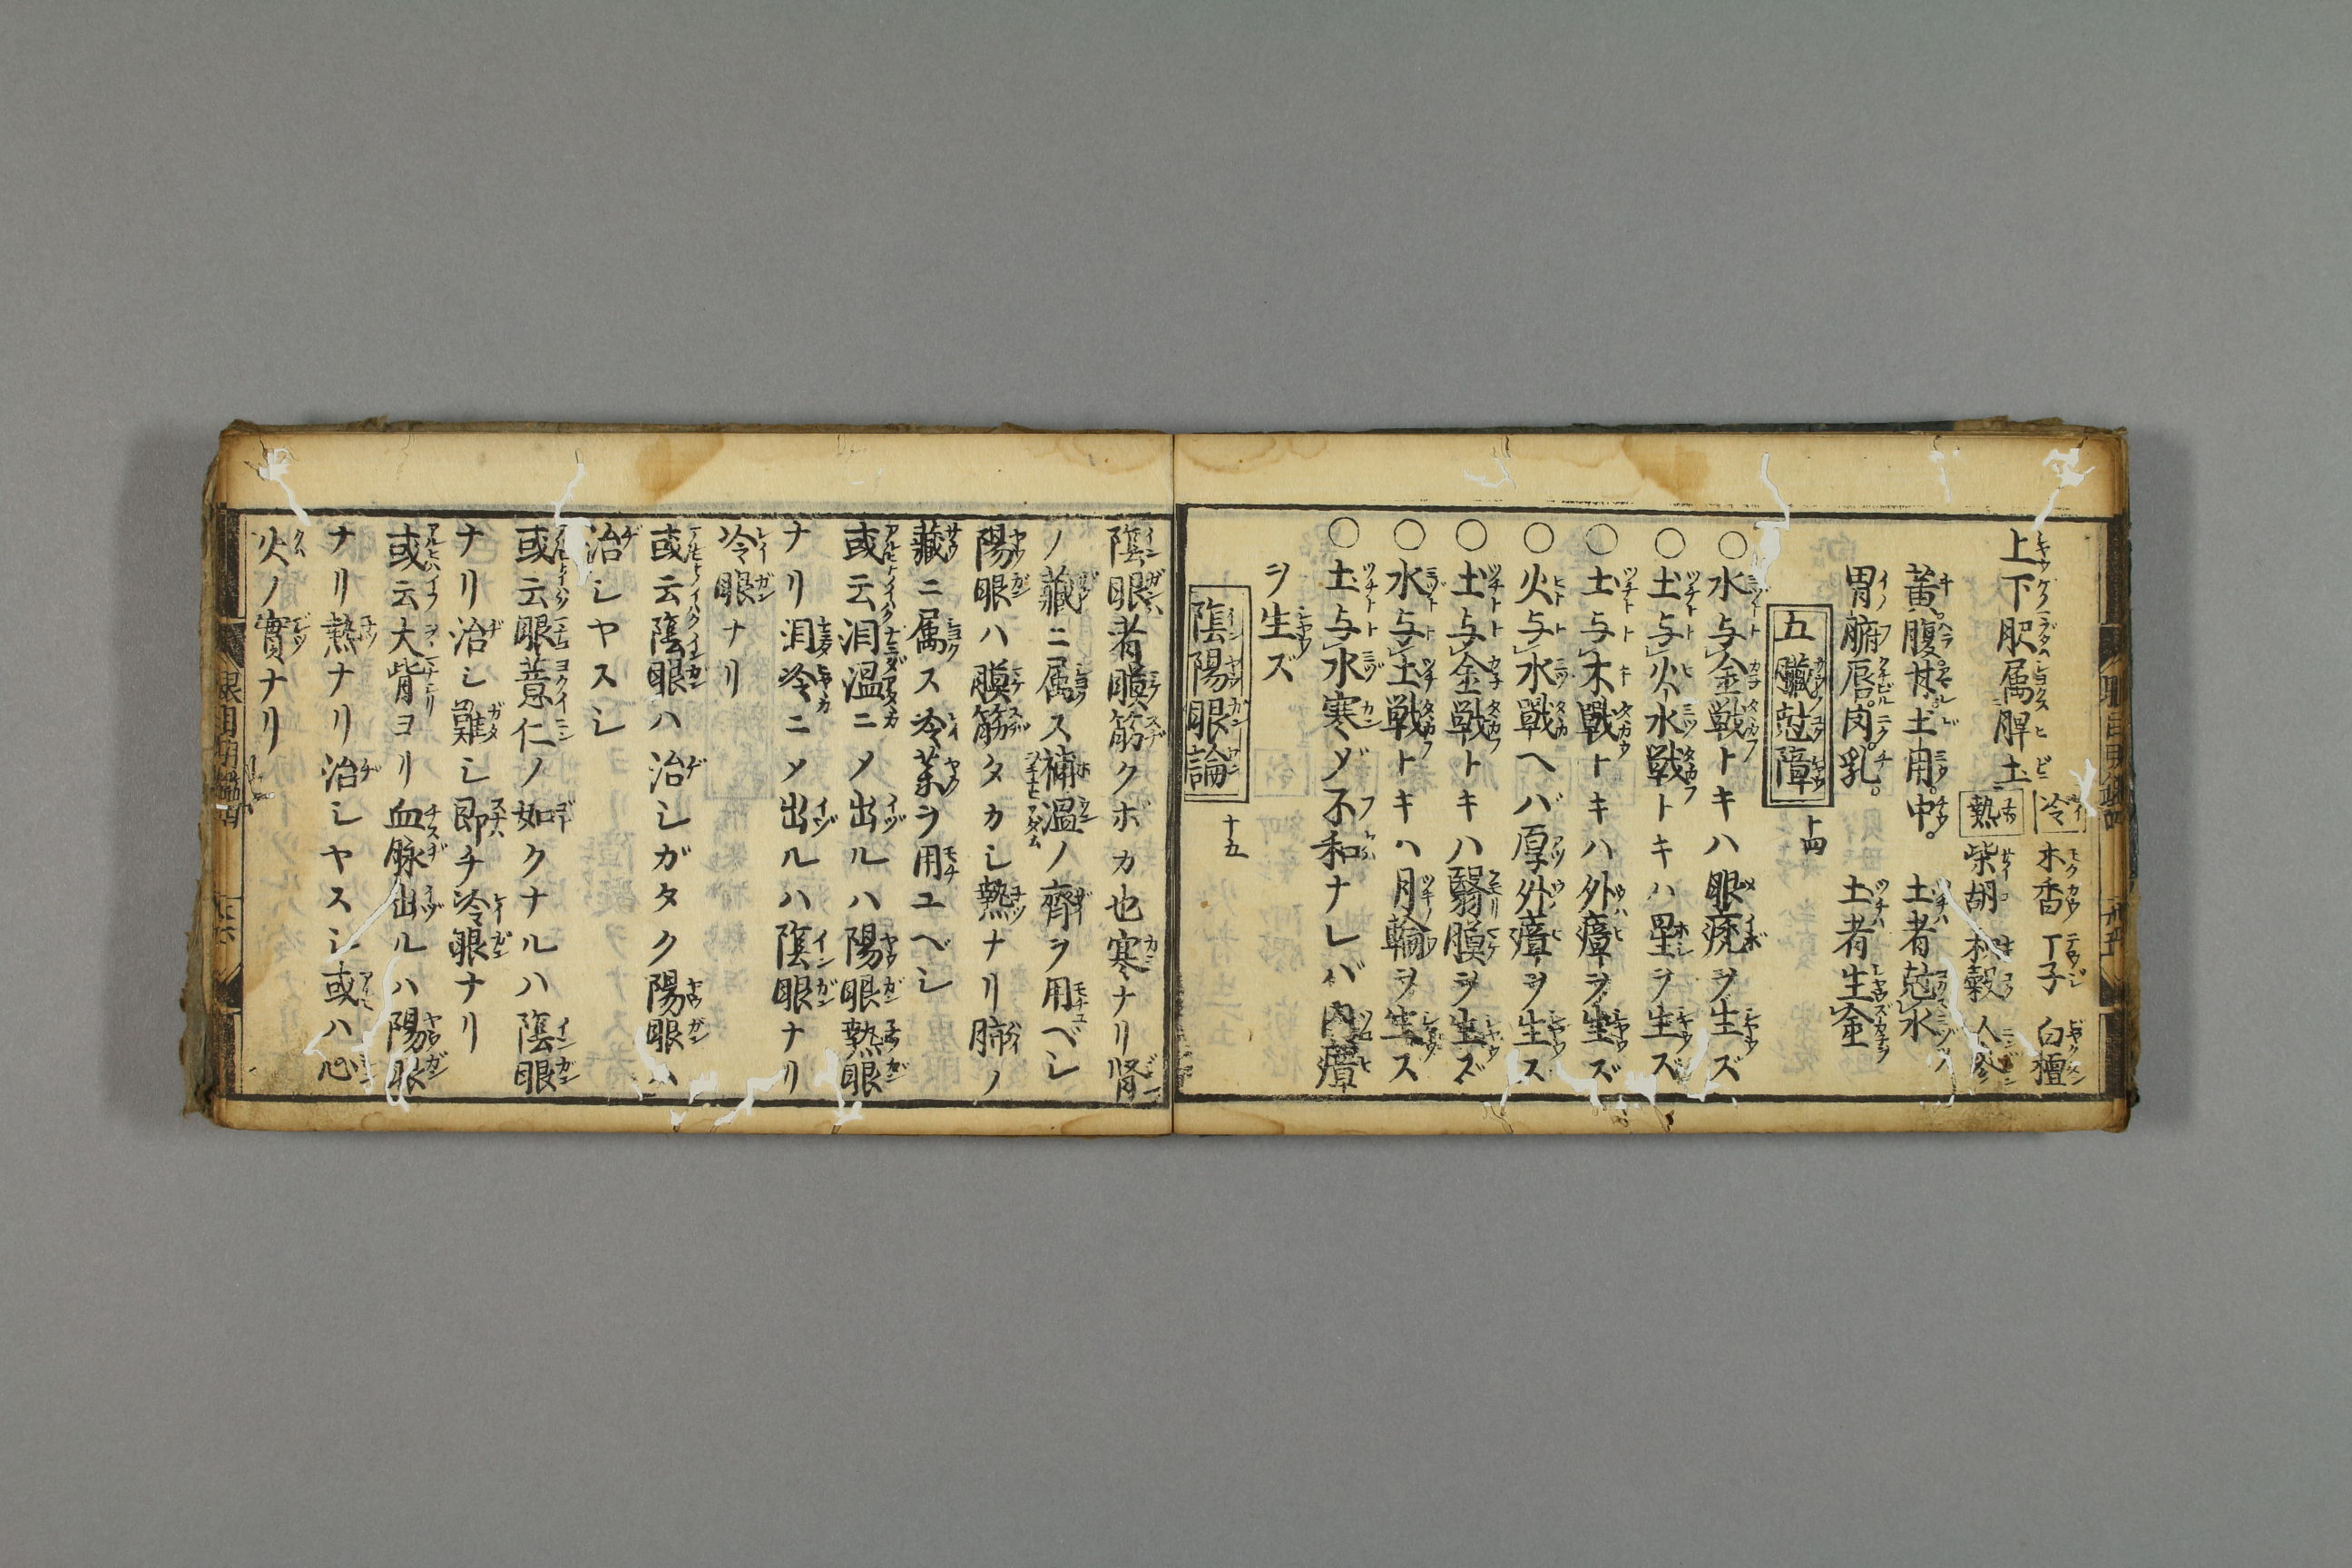 上下肥属脾土
冷 木香 丁子 白檀
熱 柴胡 枳穀 人参
黄。腹。甘。土用。中。 土者尅水
胃腑。唇。肉。乳。 土者生金
五臟尅障 十四
○水与金戦トキハ眼疣ヲ生ズ
○土与火水戦トキハ星ヲ生ズ
○土与木戦トキハ外瘴ヲ生ズ
○火与水戦ヘバ厚外瘴ヲ生ス
○土与金戦トキハ翳膜ヲ生ズ
○水与土戦トキハ月輪ヲ生ス
○土与水寒ダ不和ナレバ内瘴
ヲ生ズ
陰陽眼論 十五
陰眼者膜筋クボカ也寒ナリ腎
ノ藏ニ属ス補温ノ齊ヲ用ベシ
陽眼ハ膜筋タカシ熱ナリ肺ノ
藏ニ属ス冷茱ヲ用ユベシ
或云泪温ニメ出ルハ陽眼熱眼
ナリ泪冷ニメ出ルハ陰眼ナリ
冷眼ナリ
或云陰眼ハ治シガタク陽眼ハ
治シヤスシ
或云眼薏仁ノ如クナルハ陰眼
ナリ治シ難シ即チ冷眼ナリ
或云大眥ヨリ血脉出ルハ陽眼
ナリ熱ナリ治シヤスシ或ハ心
火ノ實ナリ